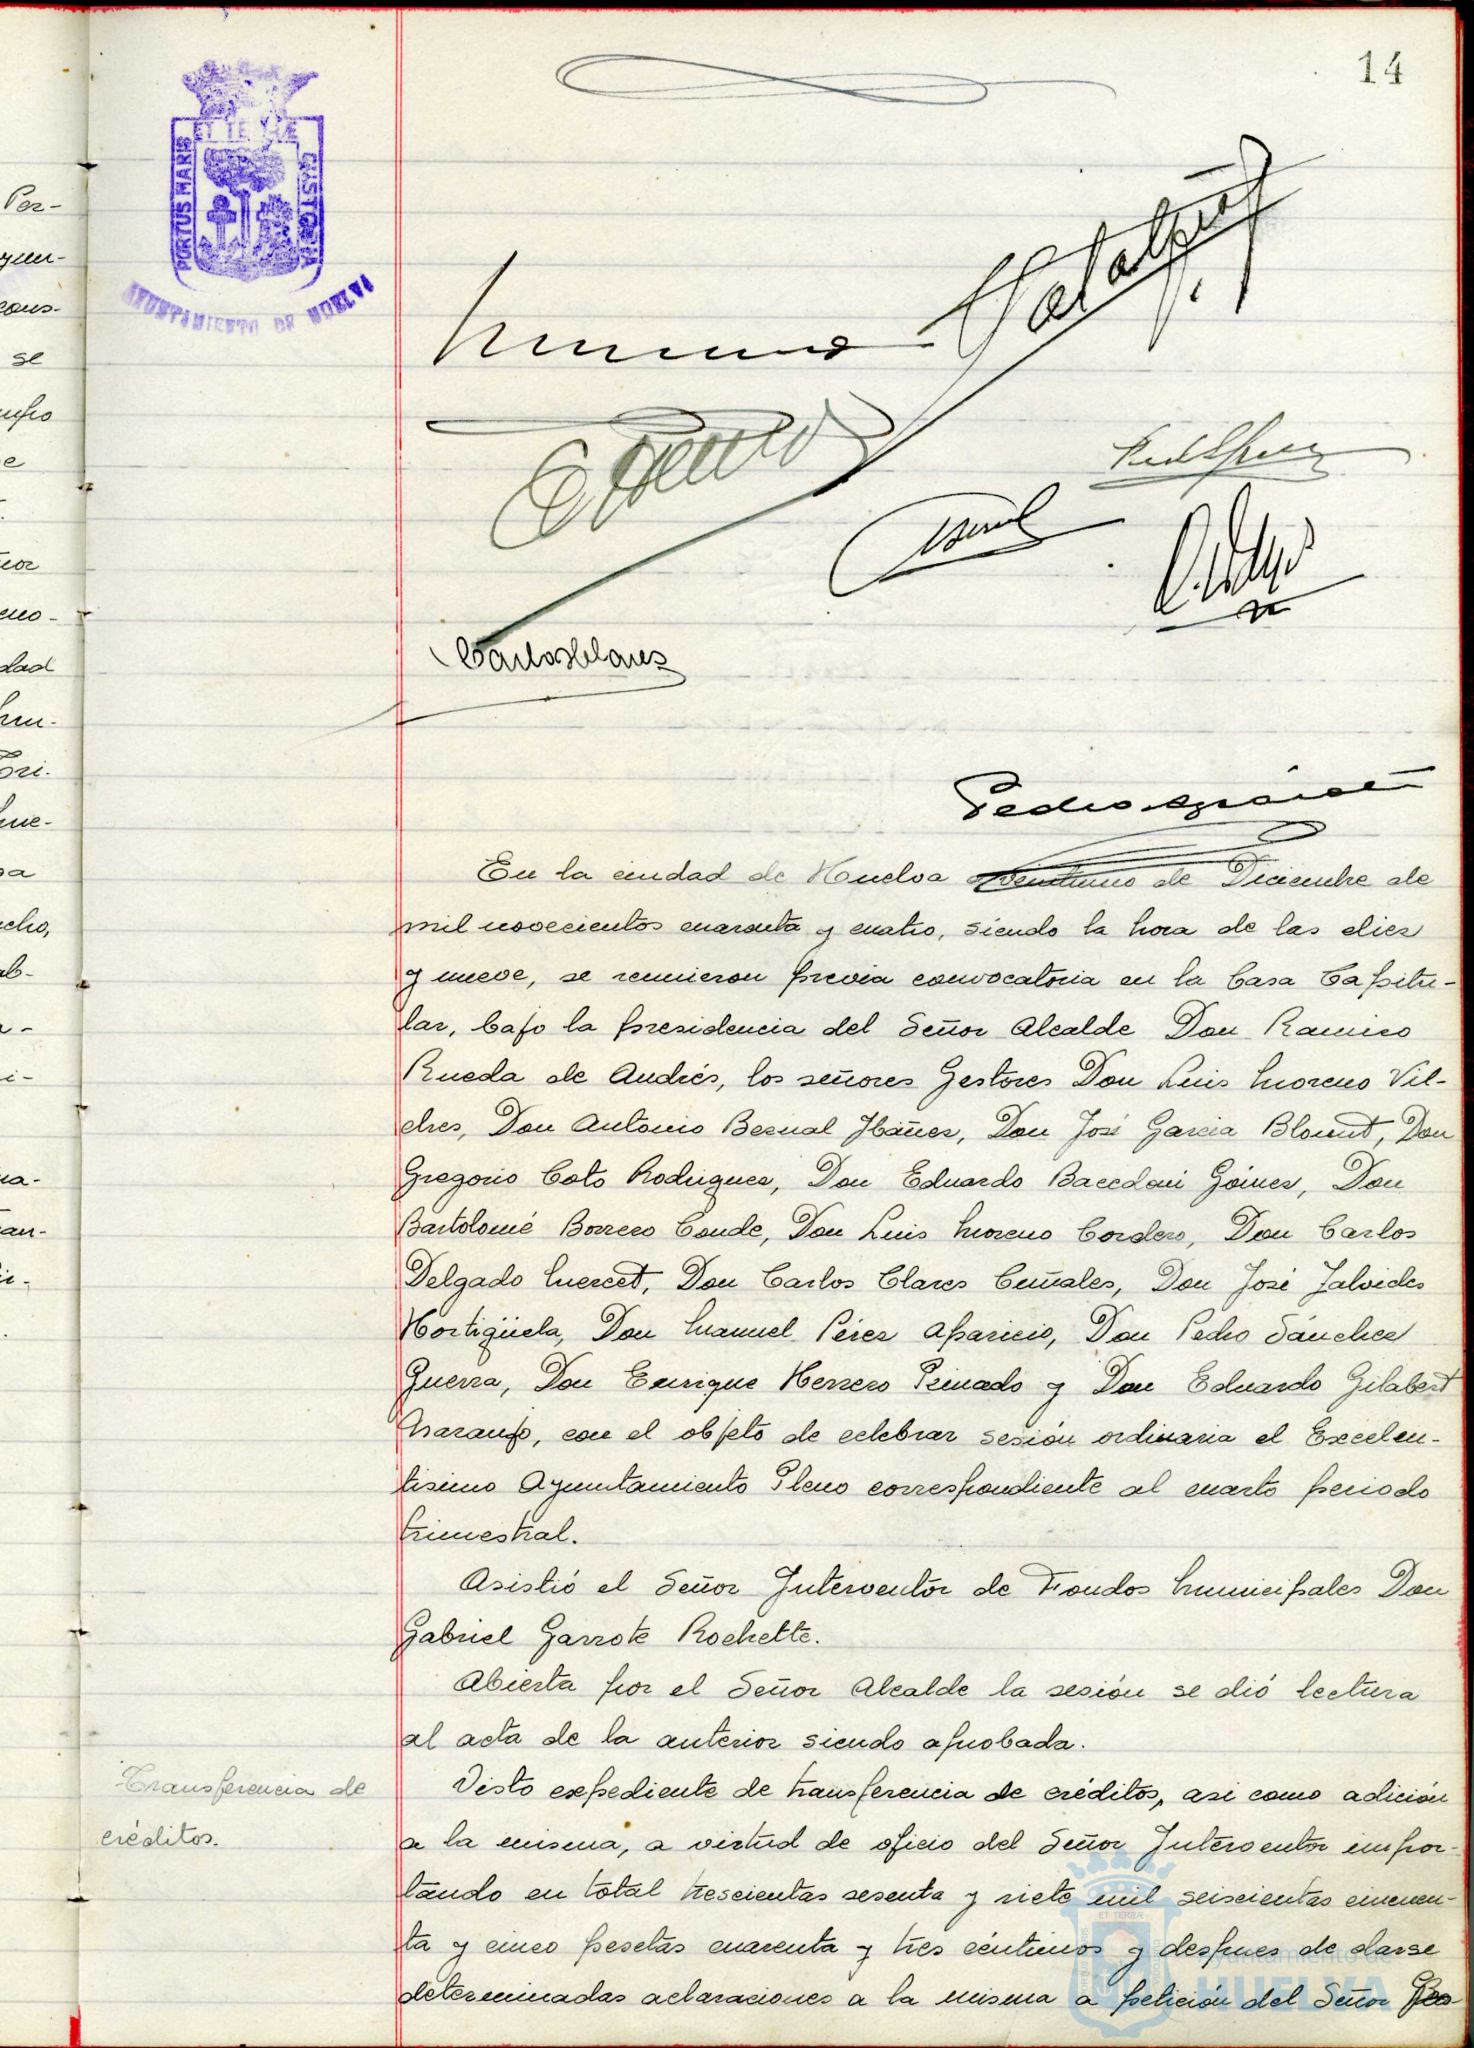 14
ET TERRÆ
PORTUS MARIS
CUSTODIA
AYUNTAMIENTO DE HUELVA
Per-
ayun-
cons-
se
dad
Carlos Clares
Pedro
En la ciudad de Huelva a veintiuno de Diciembre de
mil novecientos cuarenta y cuatro, siendo la hora de las diez
y nueve, se reunieron previa convocatoria en la Casa Capitu-
lar, bajo la presidencia del Señor Alcalde Don Ramiro
Rueda de Andrés, los señores Gestores Don Luis Moreno Vil-
ches, Don Antonio Bernal Ibáñez, Don José García Blount, Don
Gregorio Coto Rodriguez, Don Eduardo Baeedoni Góinez, Don
Bartolomé Borrero Conde, Don Luis Moreno Cordero, Don Carlos
Delgado Mercet, Don Carlos Clares Cuñales, Don José Jalvides
Hortigüela, Don Manuel Pérez Aparicio, Don Pedro Sánchez
Guerra, Don Enrique Herrero Peinado y Don Eduardo Gilabert
Naranjo, con el objeto de celebrar sesión ordinaria el Excelen-
tisimo Ayuntamiento Pleno correspondiente al cuarto periodo
trimestral.
Asistió el Señor Interventor de Fondos Municipales Don
Gabriel Garrote Rochette.
Abierta por el Señor Alcalde la sesión se dió lectura
al acta de la anterior siendo aprobada.
Transferencia de
créditos.
Visto expediente de transferencia de créditos, asi como adición
a la misma, a virtud de oficio del Señor Interventor impor-
tando en total trescientas sesenta y siete mil seiscientas cincuen-
ta y cinco pesetas cuarenta y tres céntimos y despues de darse
determinadas aclaraciones a la misma a petición del Señor
Ayuntamiento de
HUELVA